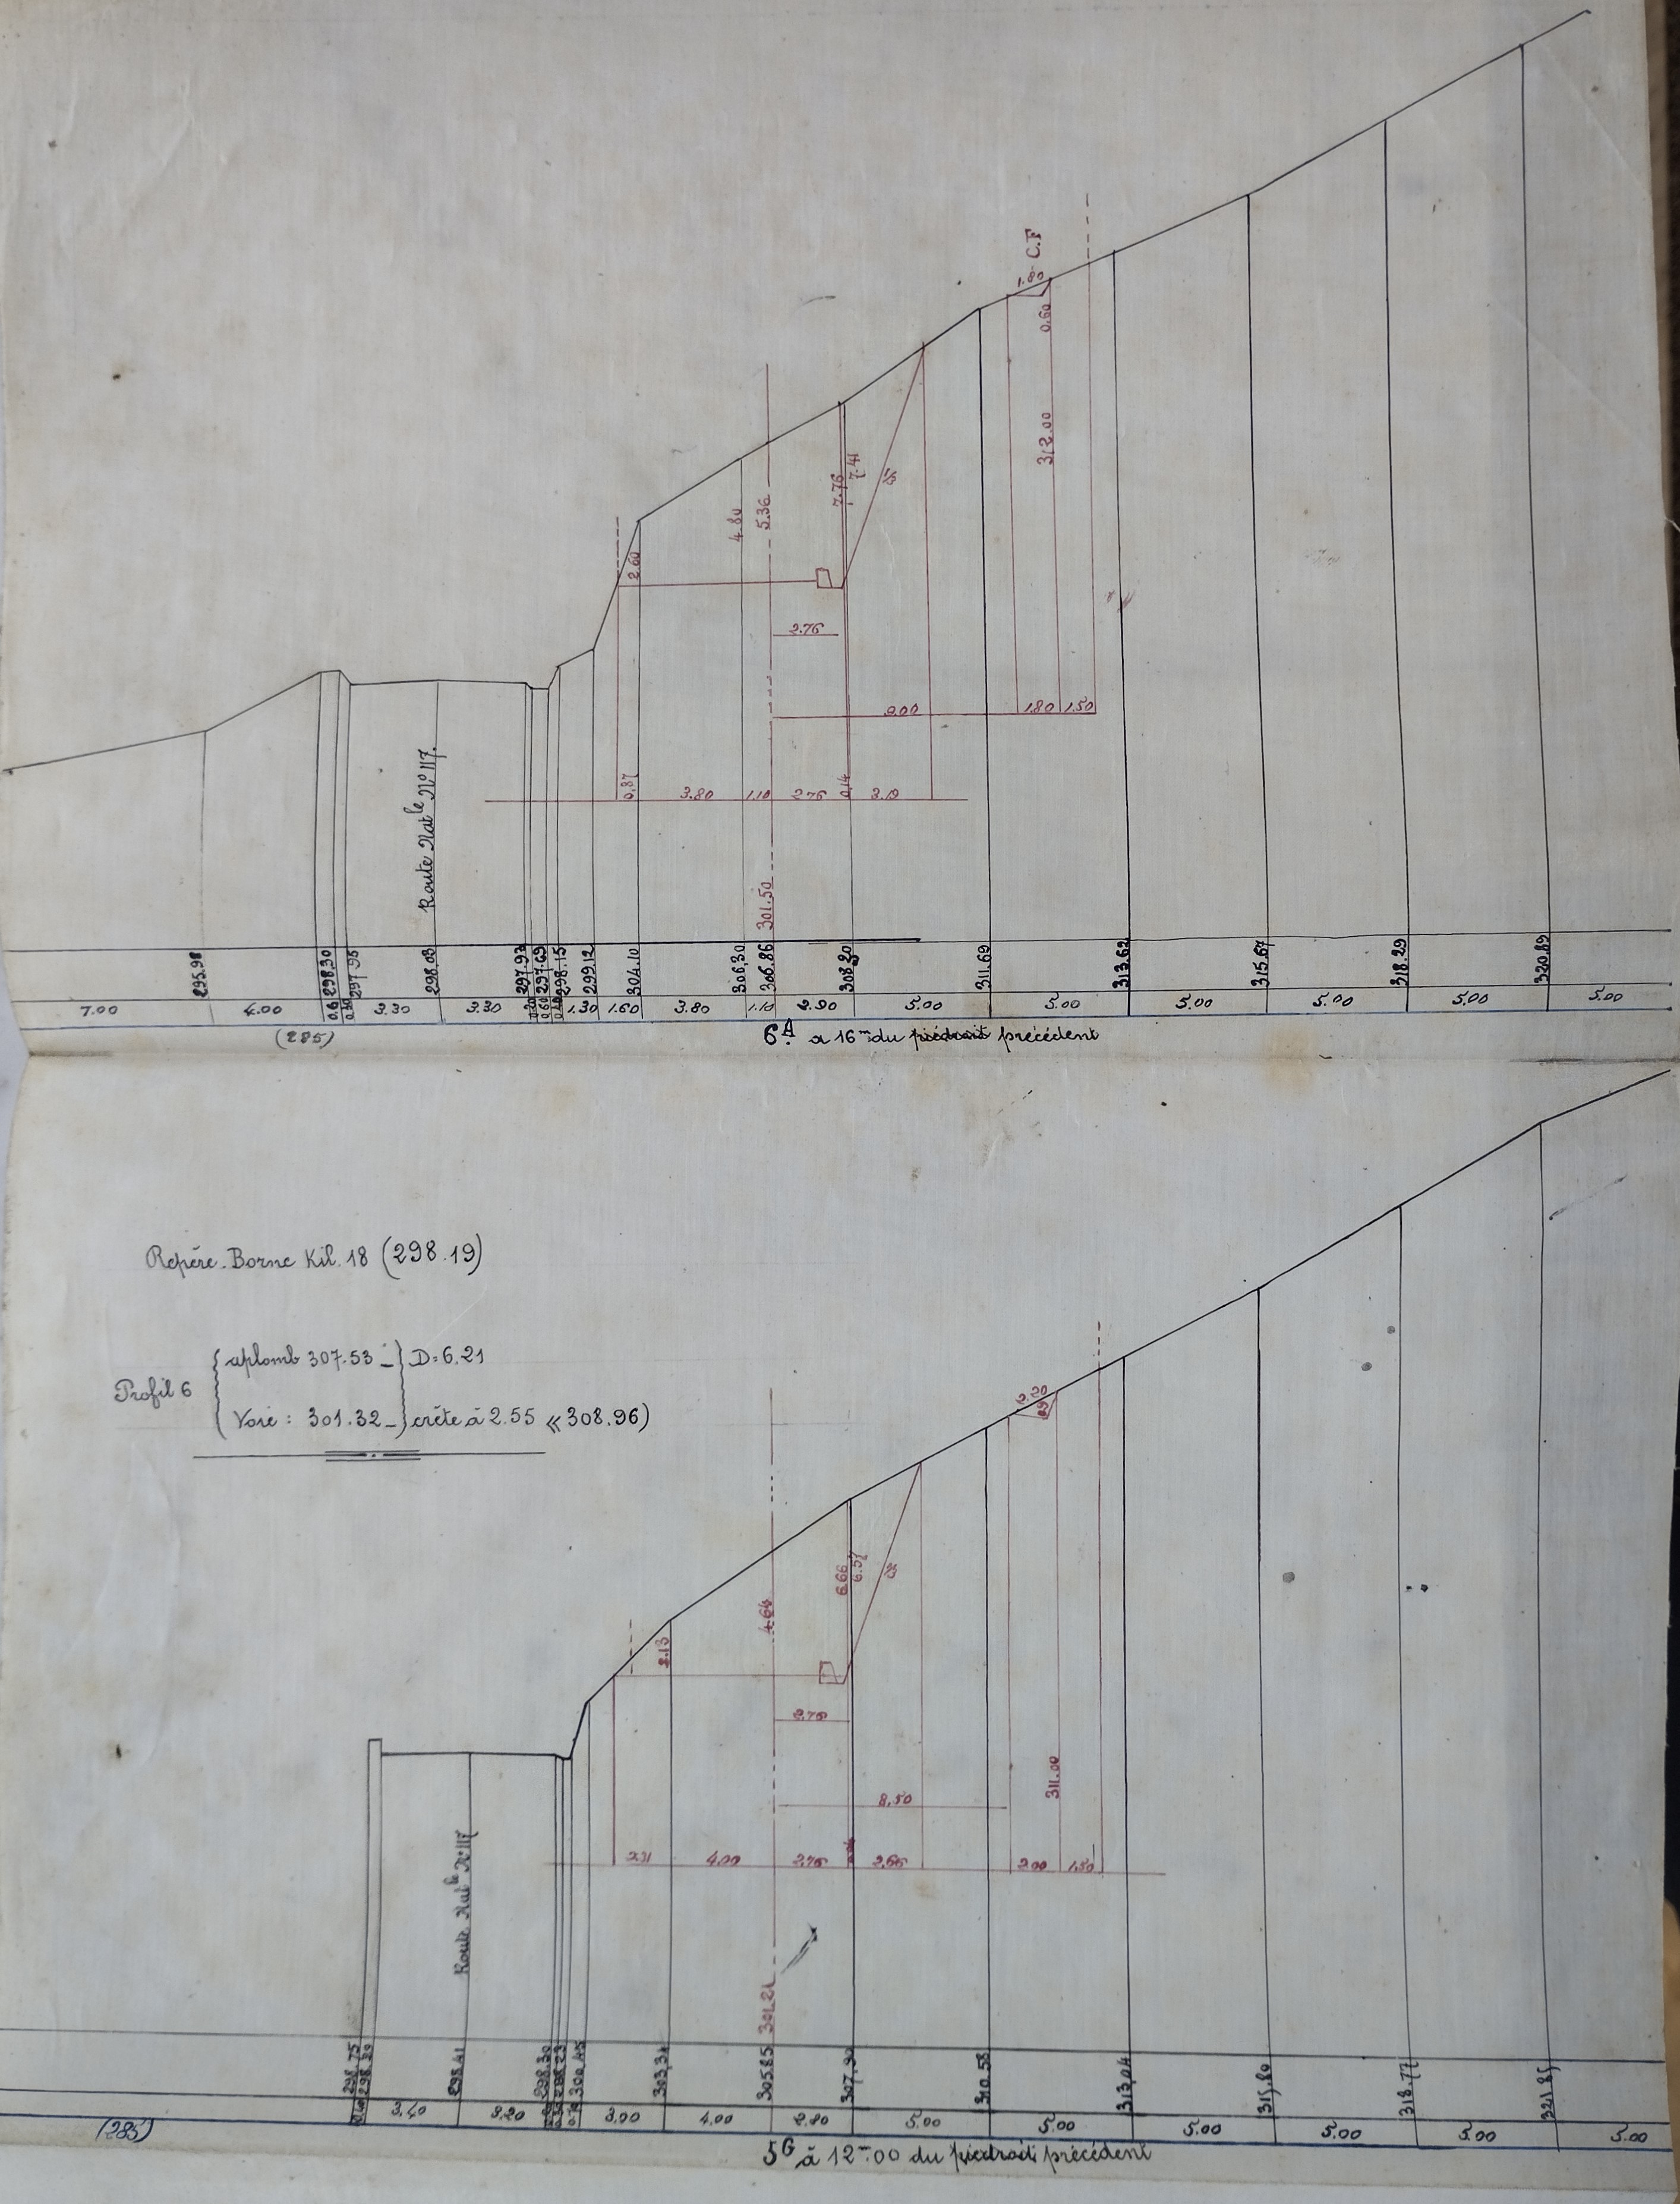 C.F
1.80
0.60
312.00
7.76
7.41
5.36
4.80
2.60
2.76
9.00
1.80
1.50
0.87
3.80
1.10
2.76
0.14
3.19
Route Natle No 117.
301.50
295.98
298.30
297.95
298.03
297.93
297.69
298.15
299.12
304.10
306,30
306.86
308.20
311.69
313.62
315.67
318.29
320.89
7.00
4.00
3.30
3.30
1.30
1.60
3.80
1.10
2.90
5.00
5.00
5.00
5.00
5.00
5.00
(285)
6A a 16m du piédroit précédent
Repère. Borne Kil. 18 (298.19)
Profil 6
aplomb 307.53 _ D=6.21
Voie : 301.32 _ crête à 2.55 «308.96)
2.20
6.66
6.57
4.64
2.13
2.76
8.50
311.00
2.31
4.00
2.76
2.66
2.00
1.50
Route Natle No 117
301.21
298.75
298.41
298.30
300.45
303,34
305.85
307,90
310.58
313,04
315,80
318.77
321.85
3.40
3.20
3.00
4.00
2.80
5.00
5.00
5.00
5.00
5.00
5.00
(285)
5G à 12m.00 du piédroit précédent